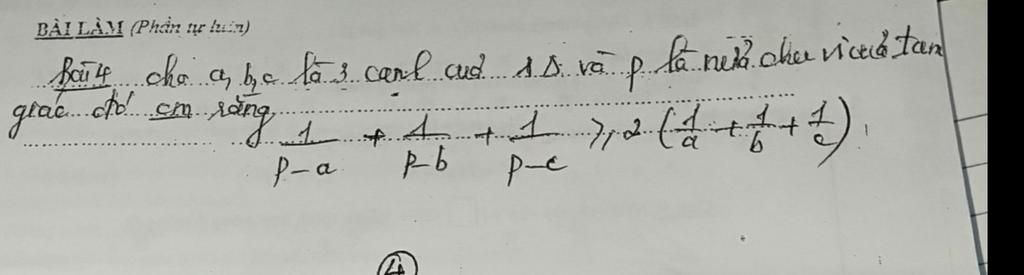 BÀI LÀM (Phần tự luận)
Bài 4 cho a, b, c là 3 cạnh của 1 Δ và p là nửa chu vi của tam
giác đó cm rằng
1/(p-a) + 1/(p-b) + 1/(p-c) ≥ 2 (1/a + 1/b + 1/c)
4